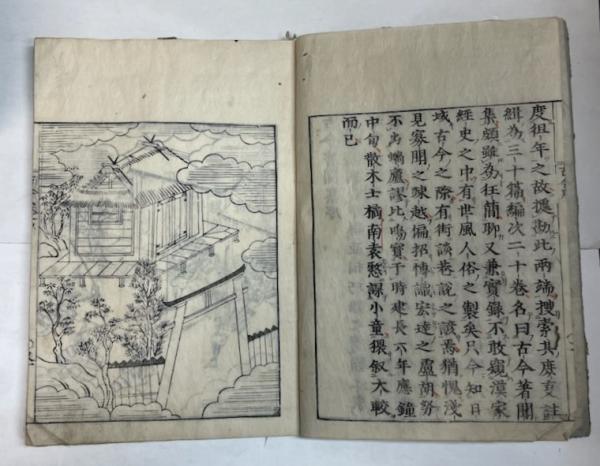 度徂年之故據勘此兩端搜索其庶事註
緝為三十篇編次二十卷名曰古今著聞
集頗雖為狂簡聊又兼實錄不敢窺漢家
經史之中有世風人俗之製矣只今知日
域古今之際有街談巷說之諺焉猶愧淺
見寡聞之疎越偏招博識宏達之盧胡努
不出蝸廬謬比鳴寶于時建長六年應鐘
中旬散木士橘南袁憖課小童猥叙大較
而已